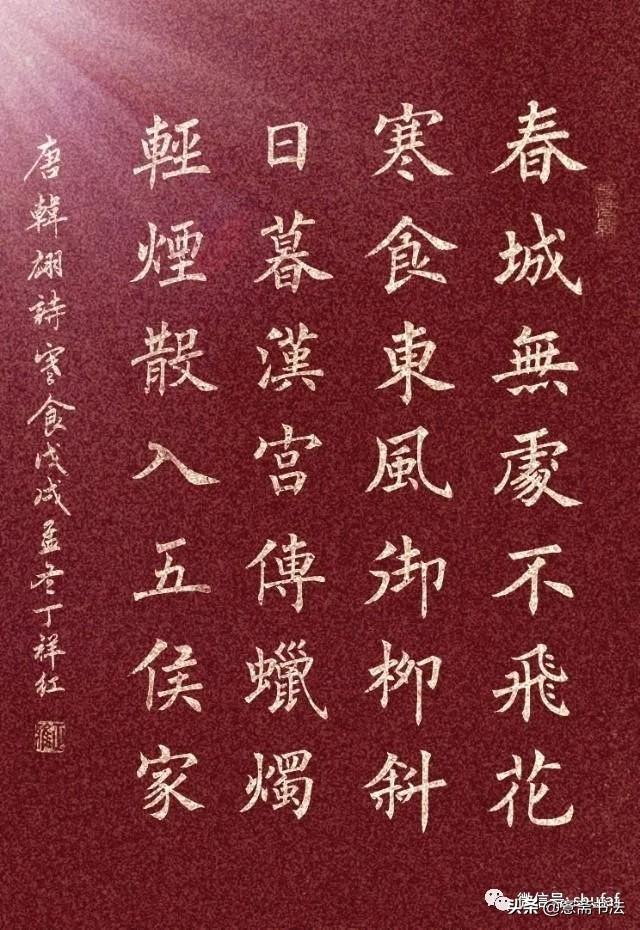 春城無處不飛花
寒食東風御柳斜
日暮漢宮傳蠟燭
輕煙散入五侯家
唐韓翃詩寒食戊戌孟冬丁祥红
微信号: shufaf
头条 @意斋书法